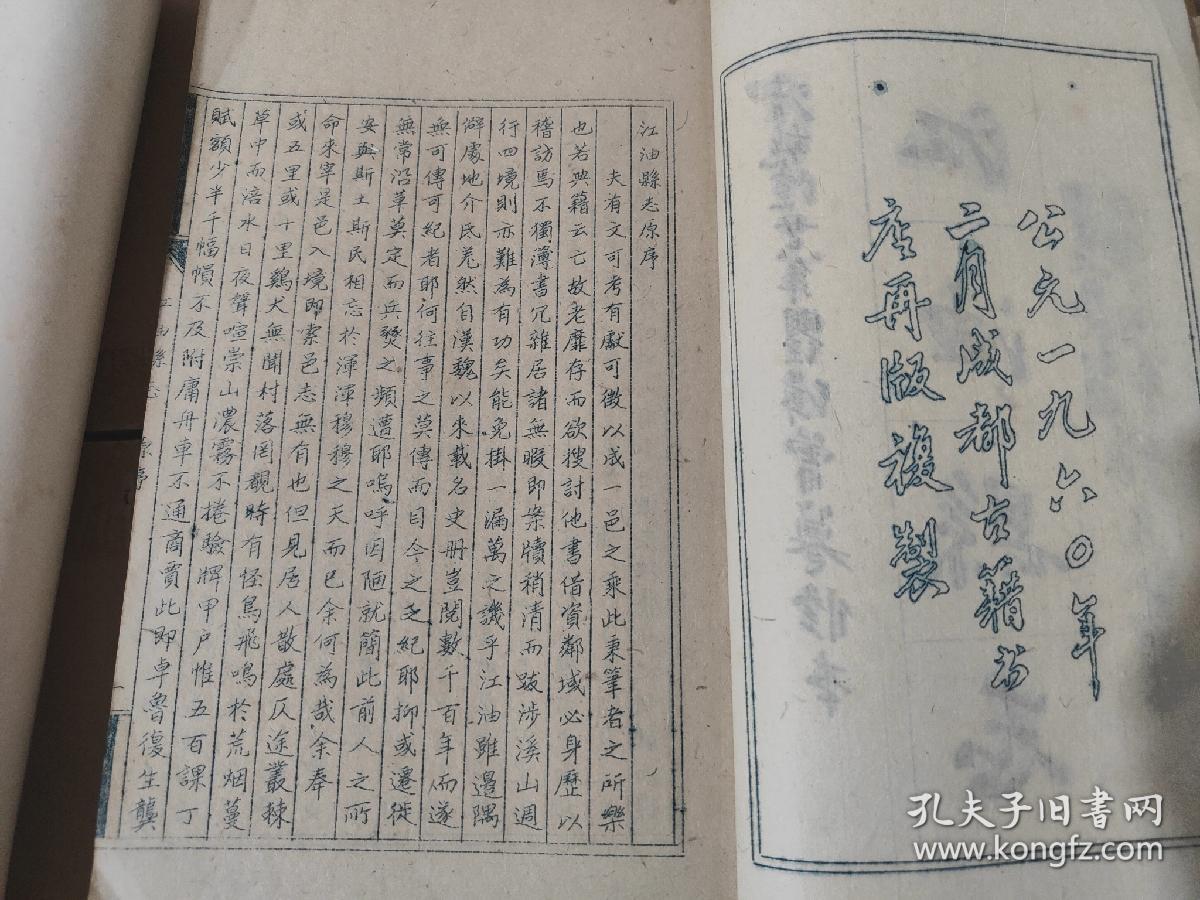 公元一九六〇年
二月成都古籍书
店再版複製
江油縣志原序
夫有文可考有獻可徵以成一邑之乘此秉筆者之所樂
也若典籍云亡故老靡存而欲搜討他書借資鄰域必身歷以
稽訪焉不獨簿書冗雜居諸無暇即案牘稍清而跋涉溪山週
行四境則亦難為有功矣能免掛一漏萬之譏乎江油雖邊隅
僻處地介氐羌然自漢魏以來載名史册豈閱數千百年而遂
無可傳可紀者耶何往事之莫傳而目今之乏紀耶抑或遷徙
無常沿革莫定而兵燹之頻遭耶嗚呼因陋就簡此前人之所
安與斯土斯民相忘於渾渾穆穆之天而已余何為哉余奉
命來宰是邑入境即索邑志無有也但見居人散處仄途叢棘
或五里或十里鷄犬無聞村落罔覯時有怪鳥飛鳴於荒烟蔓
草中而涪水日夜聲喧崇山濃霧不捲驗牌甲户惟五百課丁
賦額少半千幅幀不及附庸舟車不通商賈此即卓魯復生龔
縣志
原序
一
孔夫子旧书网
www.kongfz.com